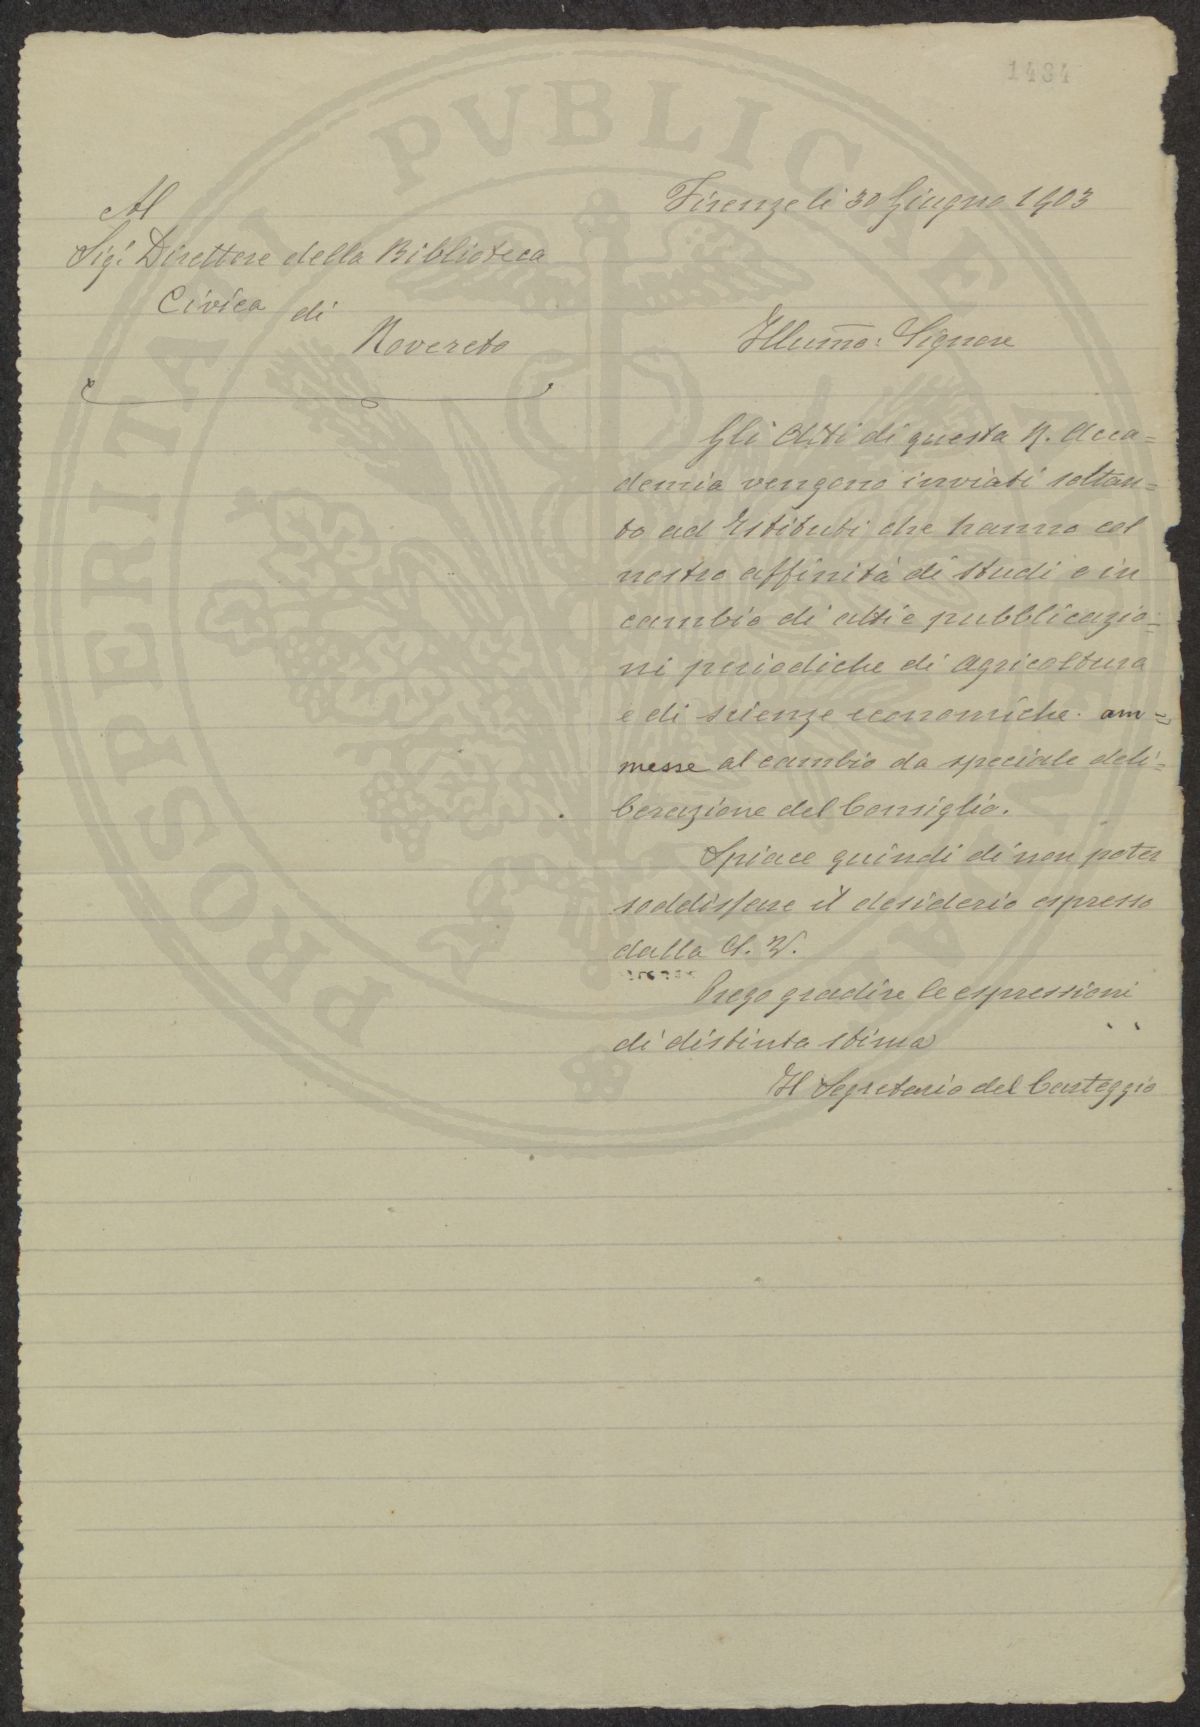 1484
Firenze li 30 Giugno 1903
Al
Sigr. Direttore della Biblioteca
Civica di
Rovereto
Illumo: Signore
Gli Atti di questa R. Acca=
demia vengono inviati soltan=
to ad Istituti che hanno col
nostro affinità di studi e in
cambio di atti e pubblicazio=
ni periodiche di agricoltura
e di scienze economiche am=
messe al cambio da speciale deli=
berazione del Consiglio.
Spiace quindi di non poter
soddisfare il desiderio espresso
dalla S. V.
Prego gradire le espressioni
di distinta stima
Il Segretario del Carteggio
PROSPERITATI PVBLICAE AVGENDAE